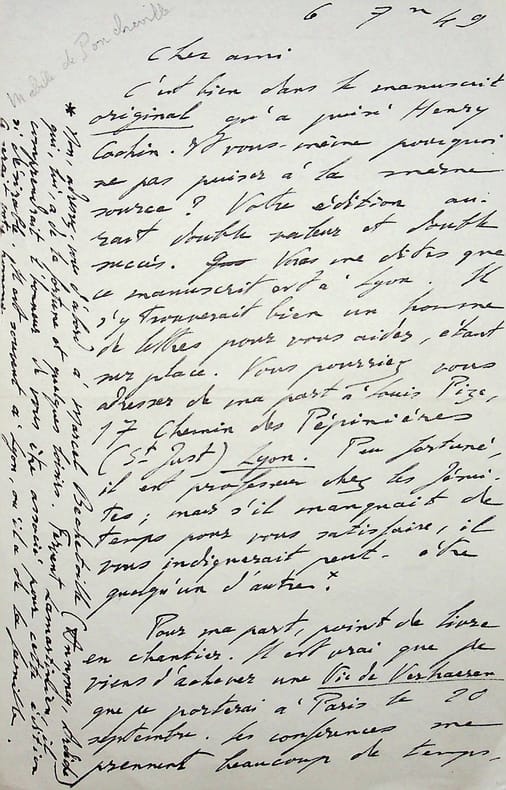 Mabille de Poncheville
6 7bre 49
Cher ami
C'est bien dans le manuscrit
original qu'a puisé Henry
Cochin. Et vous-même pourquoi
ne pas puiser à la même
source ? Votre édition au-
rait double valeur et double
succès. Vous me dites que
ce manuscrit est à Lyon. Il
s'y trouverait bien un homme
de lettres pour vous aider, étant
sur place. Vous pourriez vous
adresser de ma part à Louis Pize,
17 Chemin des Pépinières
(St Just) Lyon. Peu fortuné,
il est professeur chez les Jésui-
tes ; mais s'il manquait de
temps pour vous satisfaire, il
vous indiquerait peut-être
quelqu'un d'autre *
Pour ma part, point de livre
en chantier. Il est vrai que je
viens d'achever une Vie de Verhaeren
que je porterai à Paris le 20
septembre. Les conférences me
prennent beaucoup de temps.
* Non, adressez-vous d'abord à Marcel Bechetoille (Annonay, Ardèche)
qui, lui, a de la fortune et quelques loisirs. Fervent Lamartinien, il
comprendrait l'honneur de vous être associé pour cette édition
si désirable. Il est souvent à Lyon, où il a de la famille.
Ce serait votre homme.